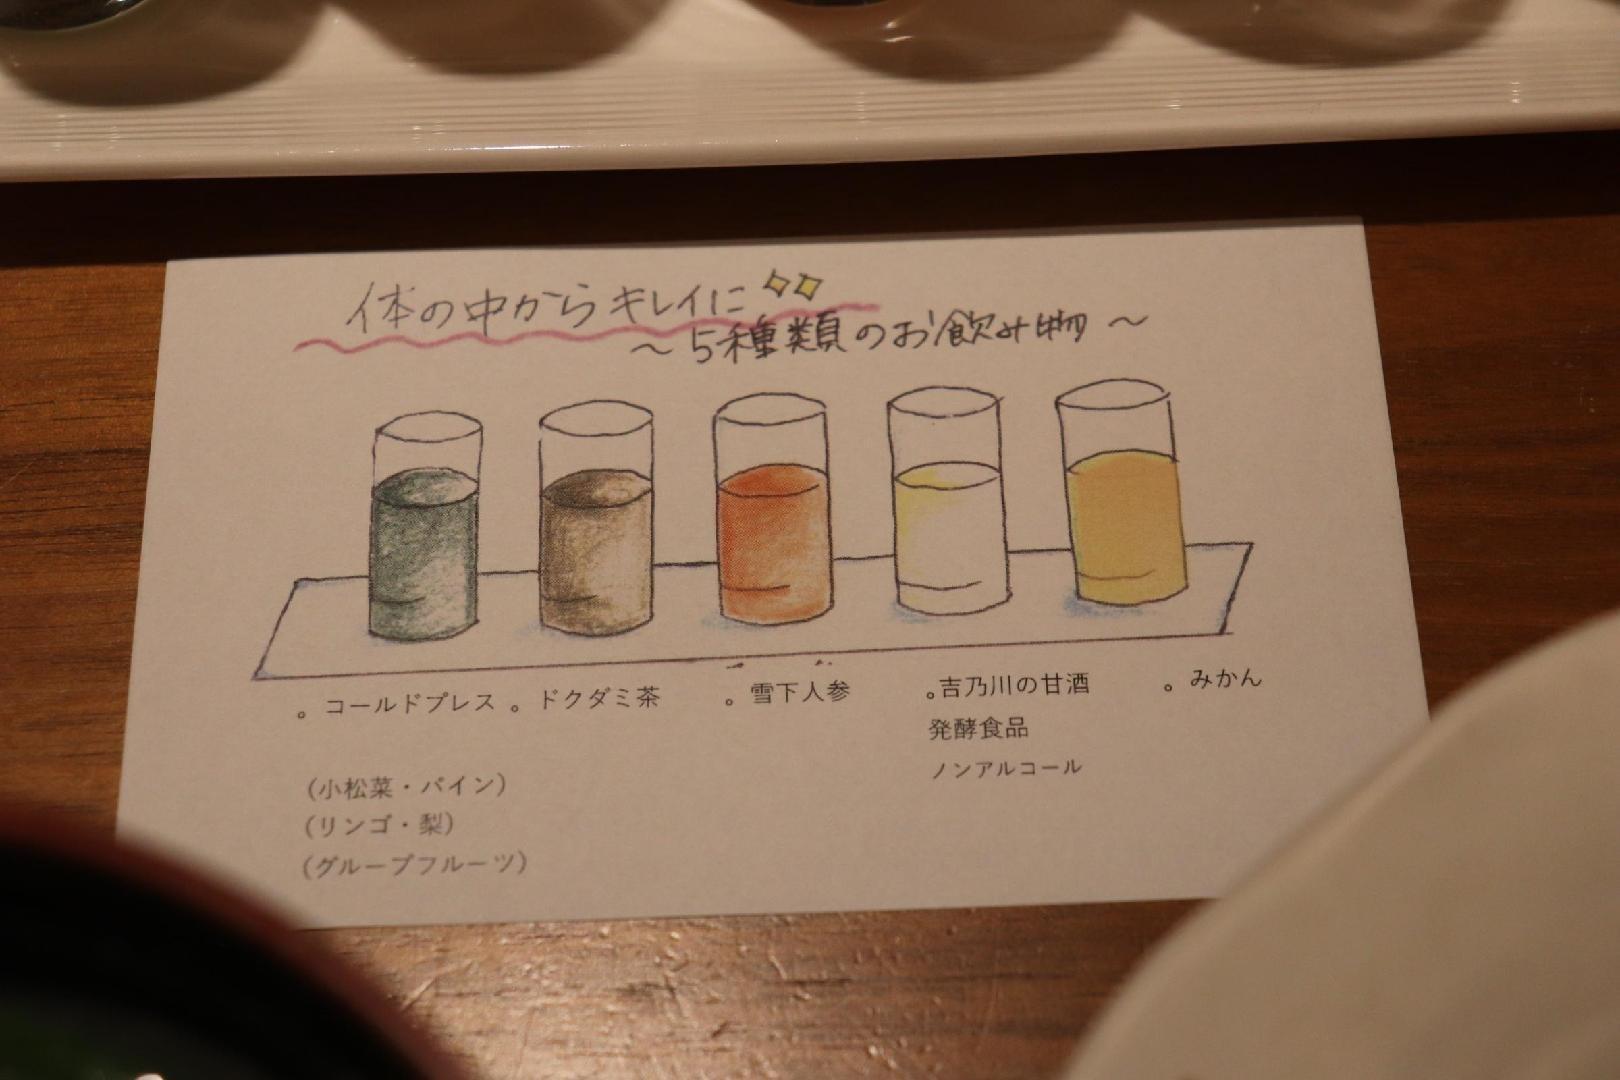 体の中からキレイに
～5種類のお飲み物～
。コールドプレス
。ドクダミ茶
。雪下人参
。吉乃川の甘酒
発酵食品
ノンアルコール
。みかん
(小松菜・パイン)
(リンゴ・梨)
(グループフルーツ)